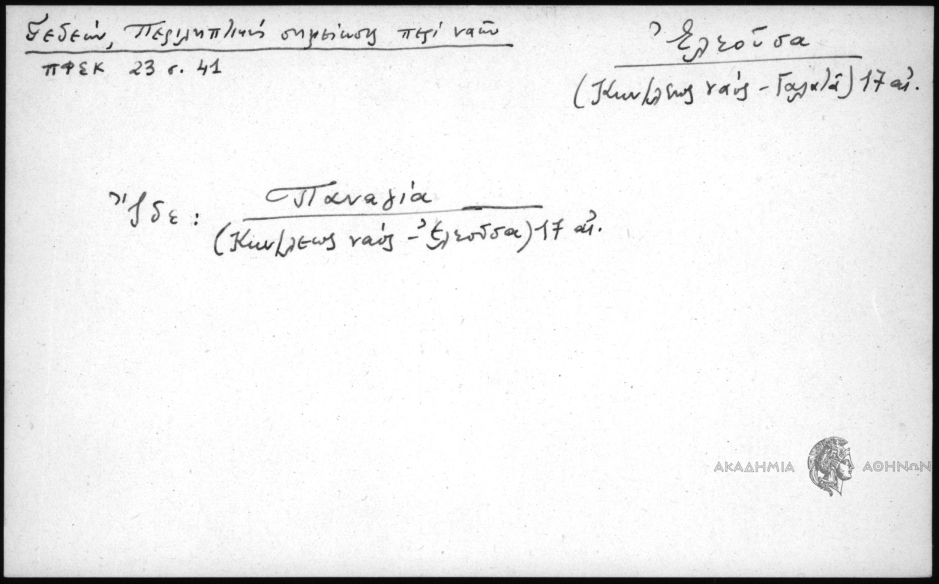 Γεδεών, Περιληπτική σημείωσις περί ναών
ΠΦΕΚ 23 σ. 41
Ἐλεοῦσα
(Κων/λεως ναός - Γαλατᾶ) 17 αἰ.
Ἴδε: Παναγία
(Κων/λεως ναός - Ἐλεοῦσα) 17 αἰ.
ΑΚΑΔΗΜΙΑ ΑΘΗΝΩΝ